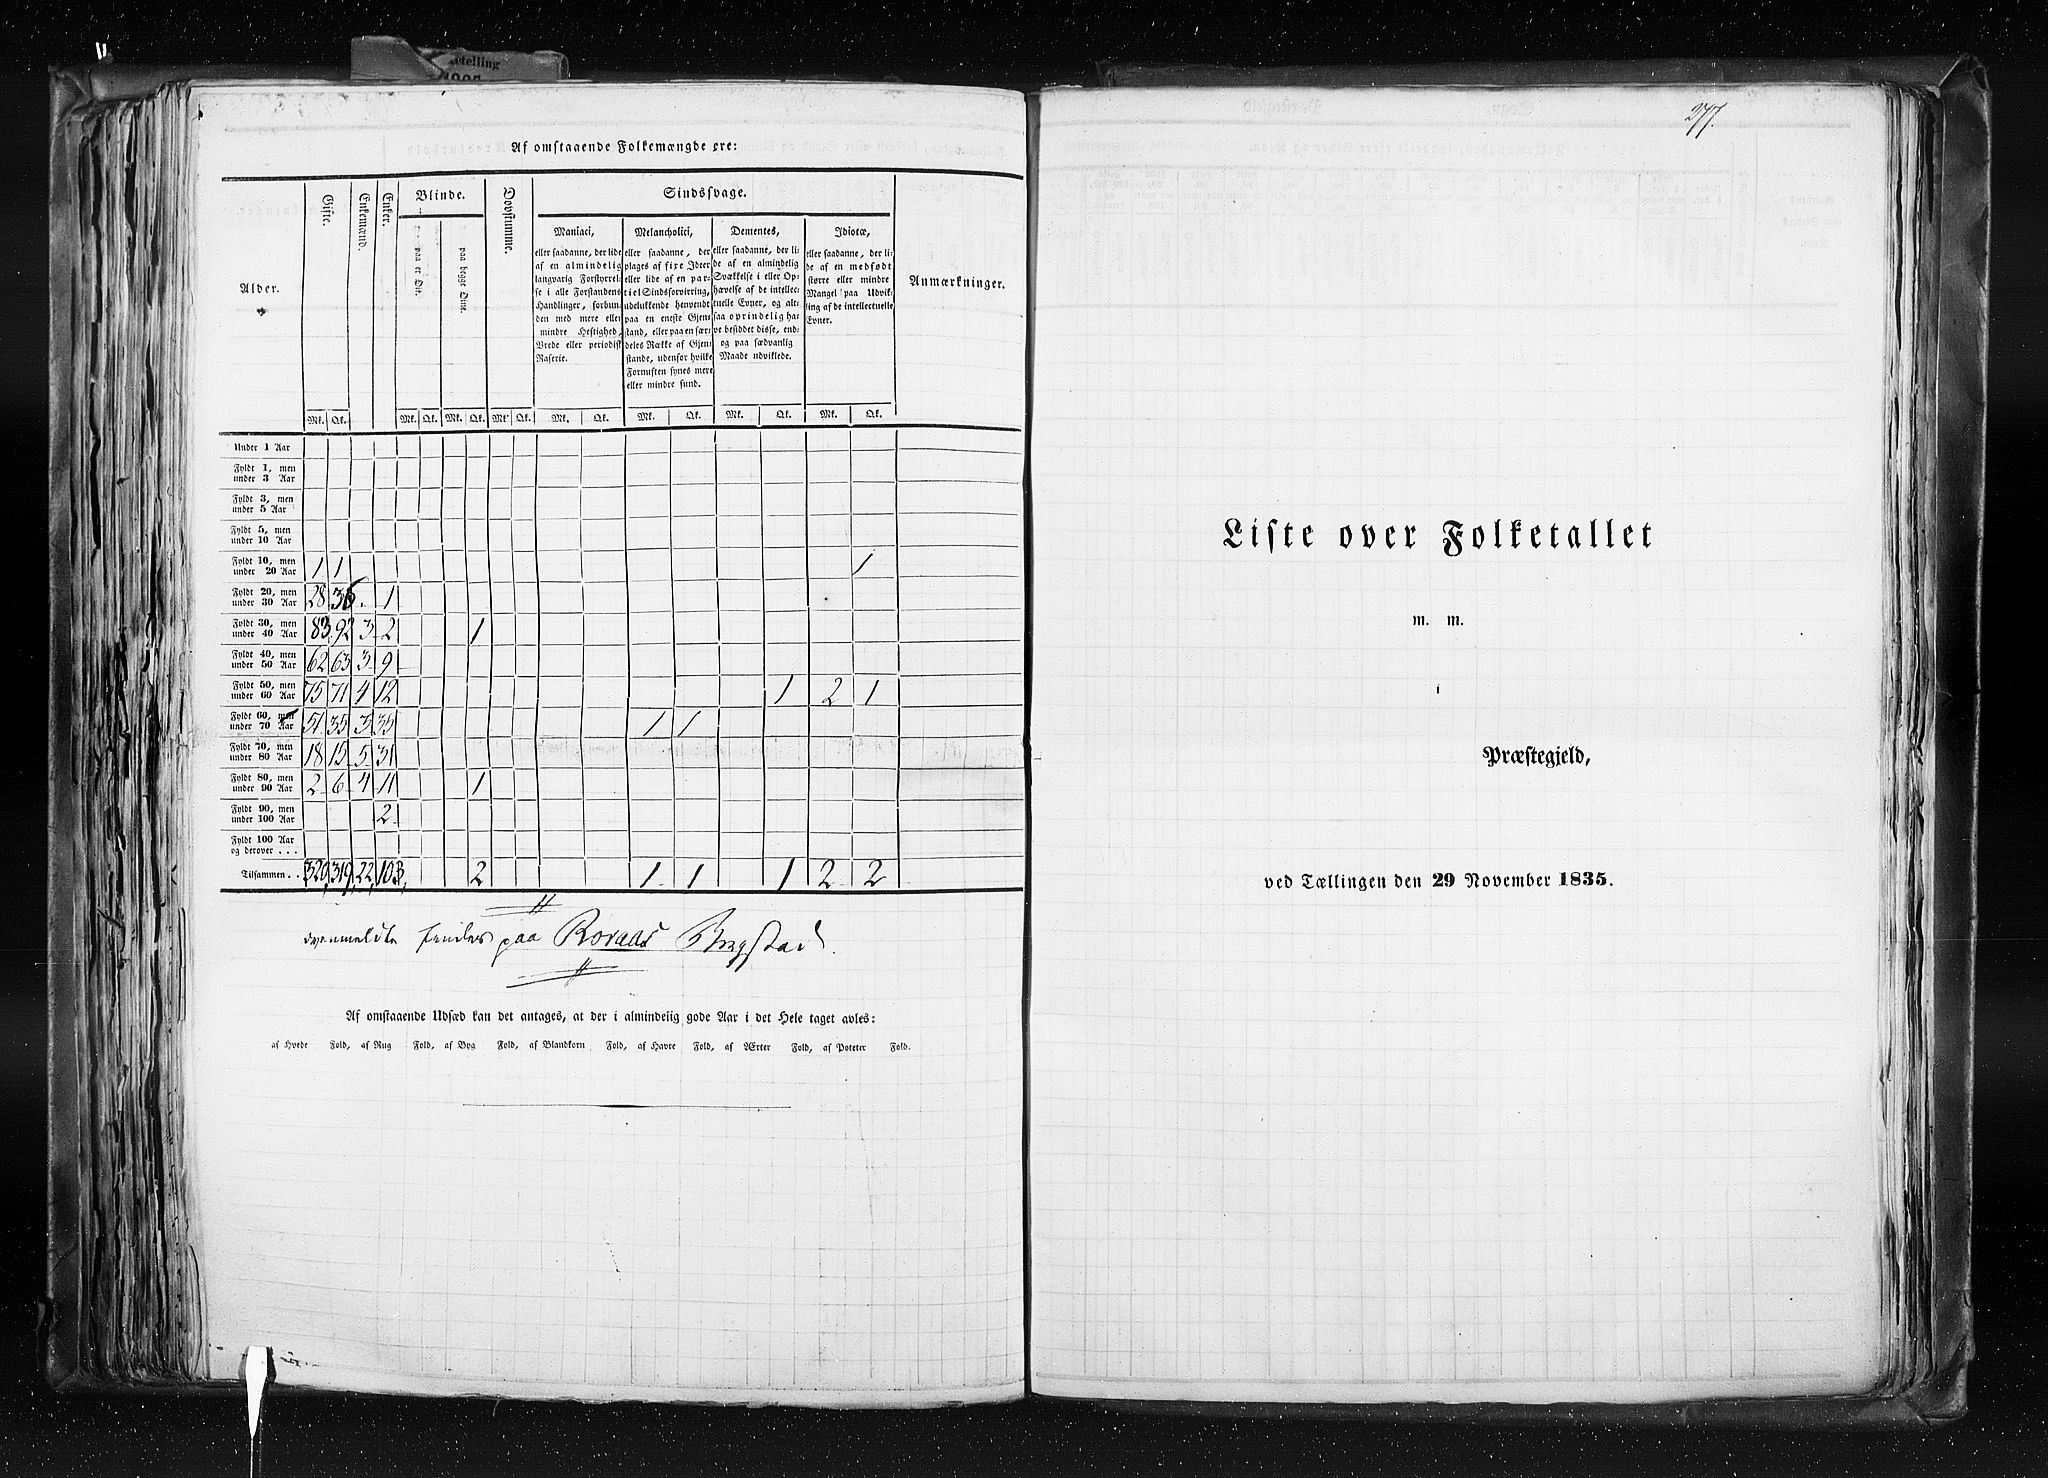 ketelling
Af omstaaende Folkemængde ere:
Alder. | Gifte. | Enkemænd. | Enker. | Blinde. | Dovstumme. | Sindssvage. | Anmærkninger.
paa et Øie. | paa begge Øine.
Maniaci, eller saadanne, der lide af en almindelig langvarig Forstyrrelse i alle Forstandens Handlinger, forbunden med mere eller mindre Heftighed, Vrede eller periodisk Raserie.
Melancholici, eller saadanne, der plages af fixe Ideer eller lide af en partiel Sindsforvirring, udelukkende henvendt paa en eneste Gjenstand, eller paa en særdeles Række af Gjenstande, udenfor hvilke Fornuften synes mere eller mindre sund.
Dementes, eller saadanne, der lide af en almindelig Svækkelse i eller Ophævelse af de intellectuelle Evner, og altsaa oprindelig have besiddet disse, endog paa sædvanlig Maade udviklede.
Idiotæ, eller saadanne, der lide af en medfødt større eller mindre Mangel paa Udvikling af de intellectuelle Evner.
Mk. Qk. | Mk. Qk. | Mk. Qk. | Mk. Qk. | Mk. Qk. | Mk. Qk. | Mk. Qk. | Mk. Qk.
Under 1 Aar
Fyldt 1, men under 3 Aar
Fyldt 3, men under 5 Aar
Fyldt 5, men under 10 Aar
Fyldt 10, men under 20 Aar 1 1 1
Fyldt 20, men under 30 Aar 28 36 1
Fyldt 30, men under 40 Aar 83 92 3 2 1
Fyldt 40, men under 50 Aar 62 63 3 9
Fyldt 50, men under 60 Aar 75 71 4 12 1 2 1
Fyldt 60, men under 70 Aar 51 35 3 35 1 1
Fyldt 70, men under 80 Aar 18 15 5 31
Fyldt 80, men under 90 Aar 2 6 4 11 1
Fyldt 90, men under 100 Aar 2
Fyldt 100 Aar og derover . . .
Tilsammen . . 320, 319, 22, 103, 2 1 1 1 2 2
paa Roraas
Af omstaaende Udsæd kan det antages, at der i almindelig gode Aar i det Hele taget avles:
af Hvede Fold, af Rug Fold, af Byg Fold, af Blandkorn Fold, af Havre Fold, af Ærter Fold, af Poteter Fold.
277.
Liste over Folketallet
m. m.
i
Præstegjeld,
ved Tællingen den 29 November 1835.